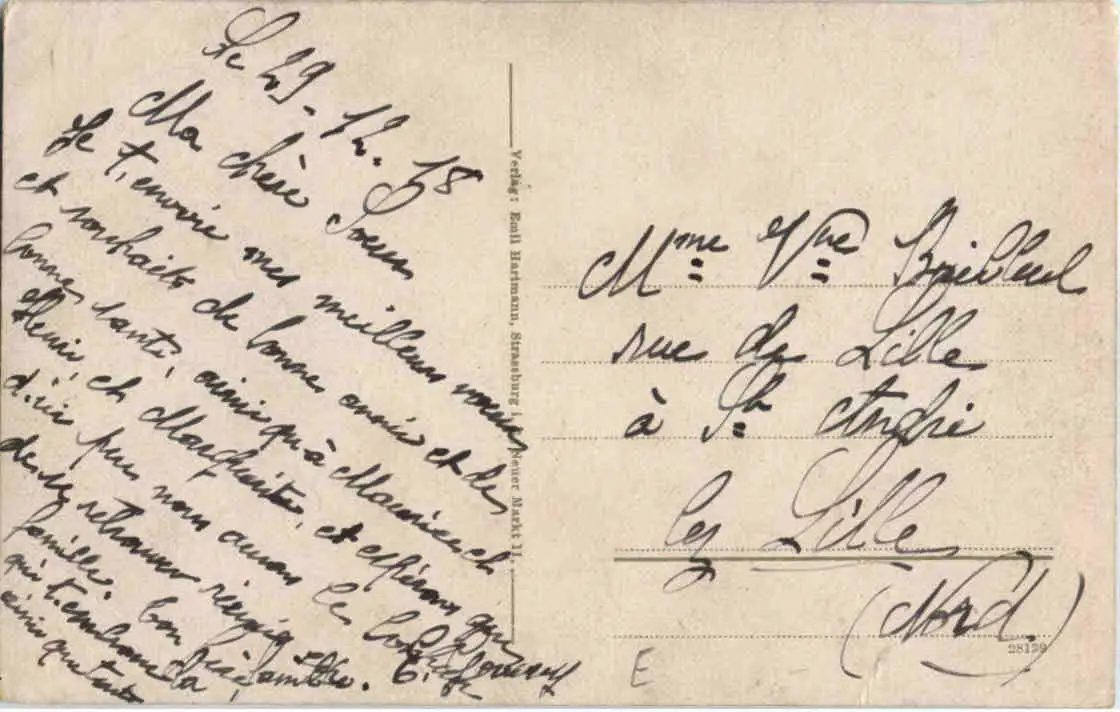 Le 29.12.18
Ma chère Soeur
Je t'envoie mes meilleurs voeux
et souhaits de bonne année et de
bonne santé, ainsi qu'à Maurice et
Henri, et Marguerite, et espérons que
d'ici peu nous aurons le bonheur
de se retrouver réunis en
famille. Ton frère
qui t'embrasse
ainsi que
Verlag: Emil Hartmann, Strassburg i. Neuer Markt 11.
Mme Vve Bailleul
rue de Lille
à St André
lez Lille
(Nord)
28129
E